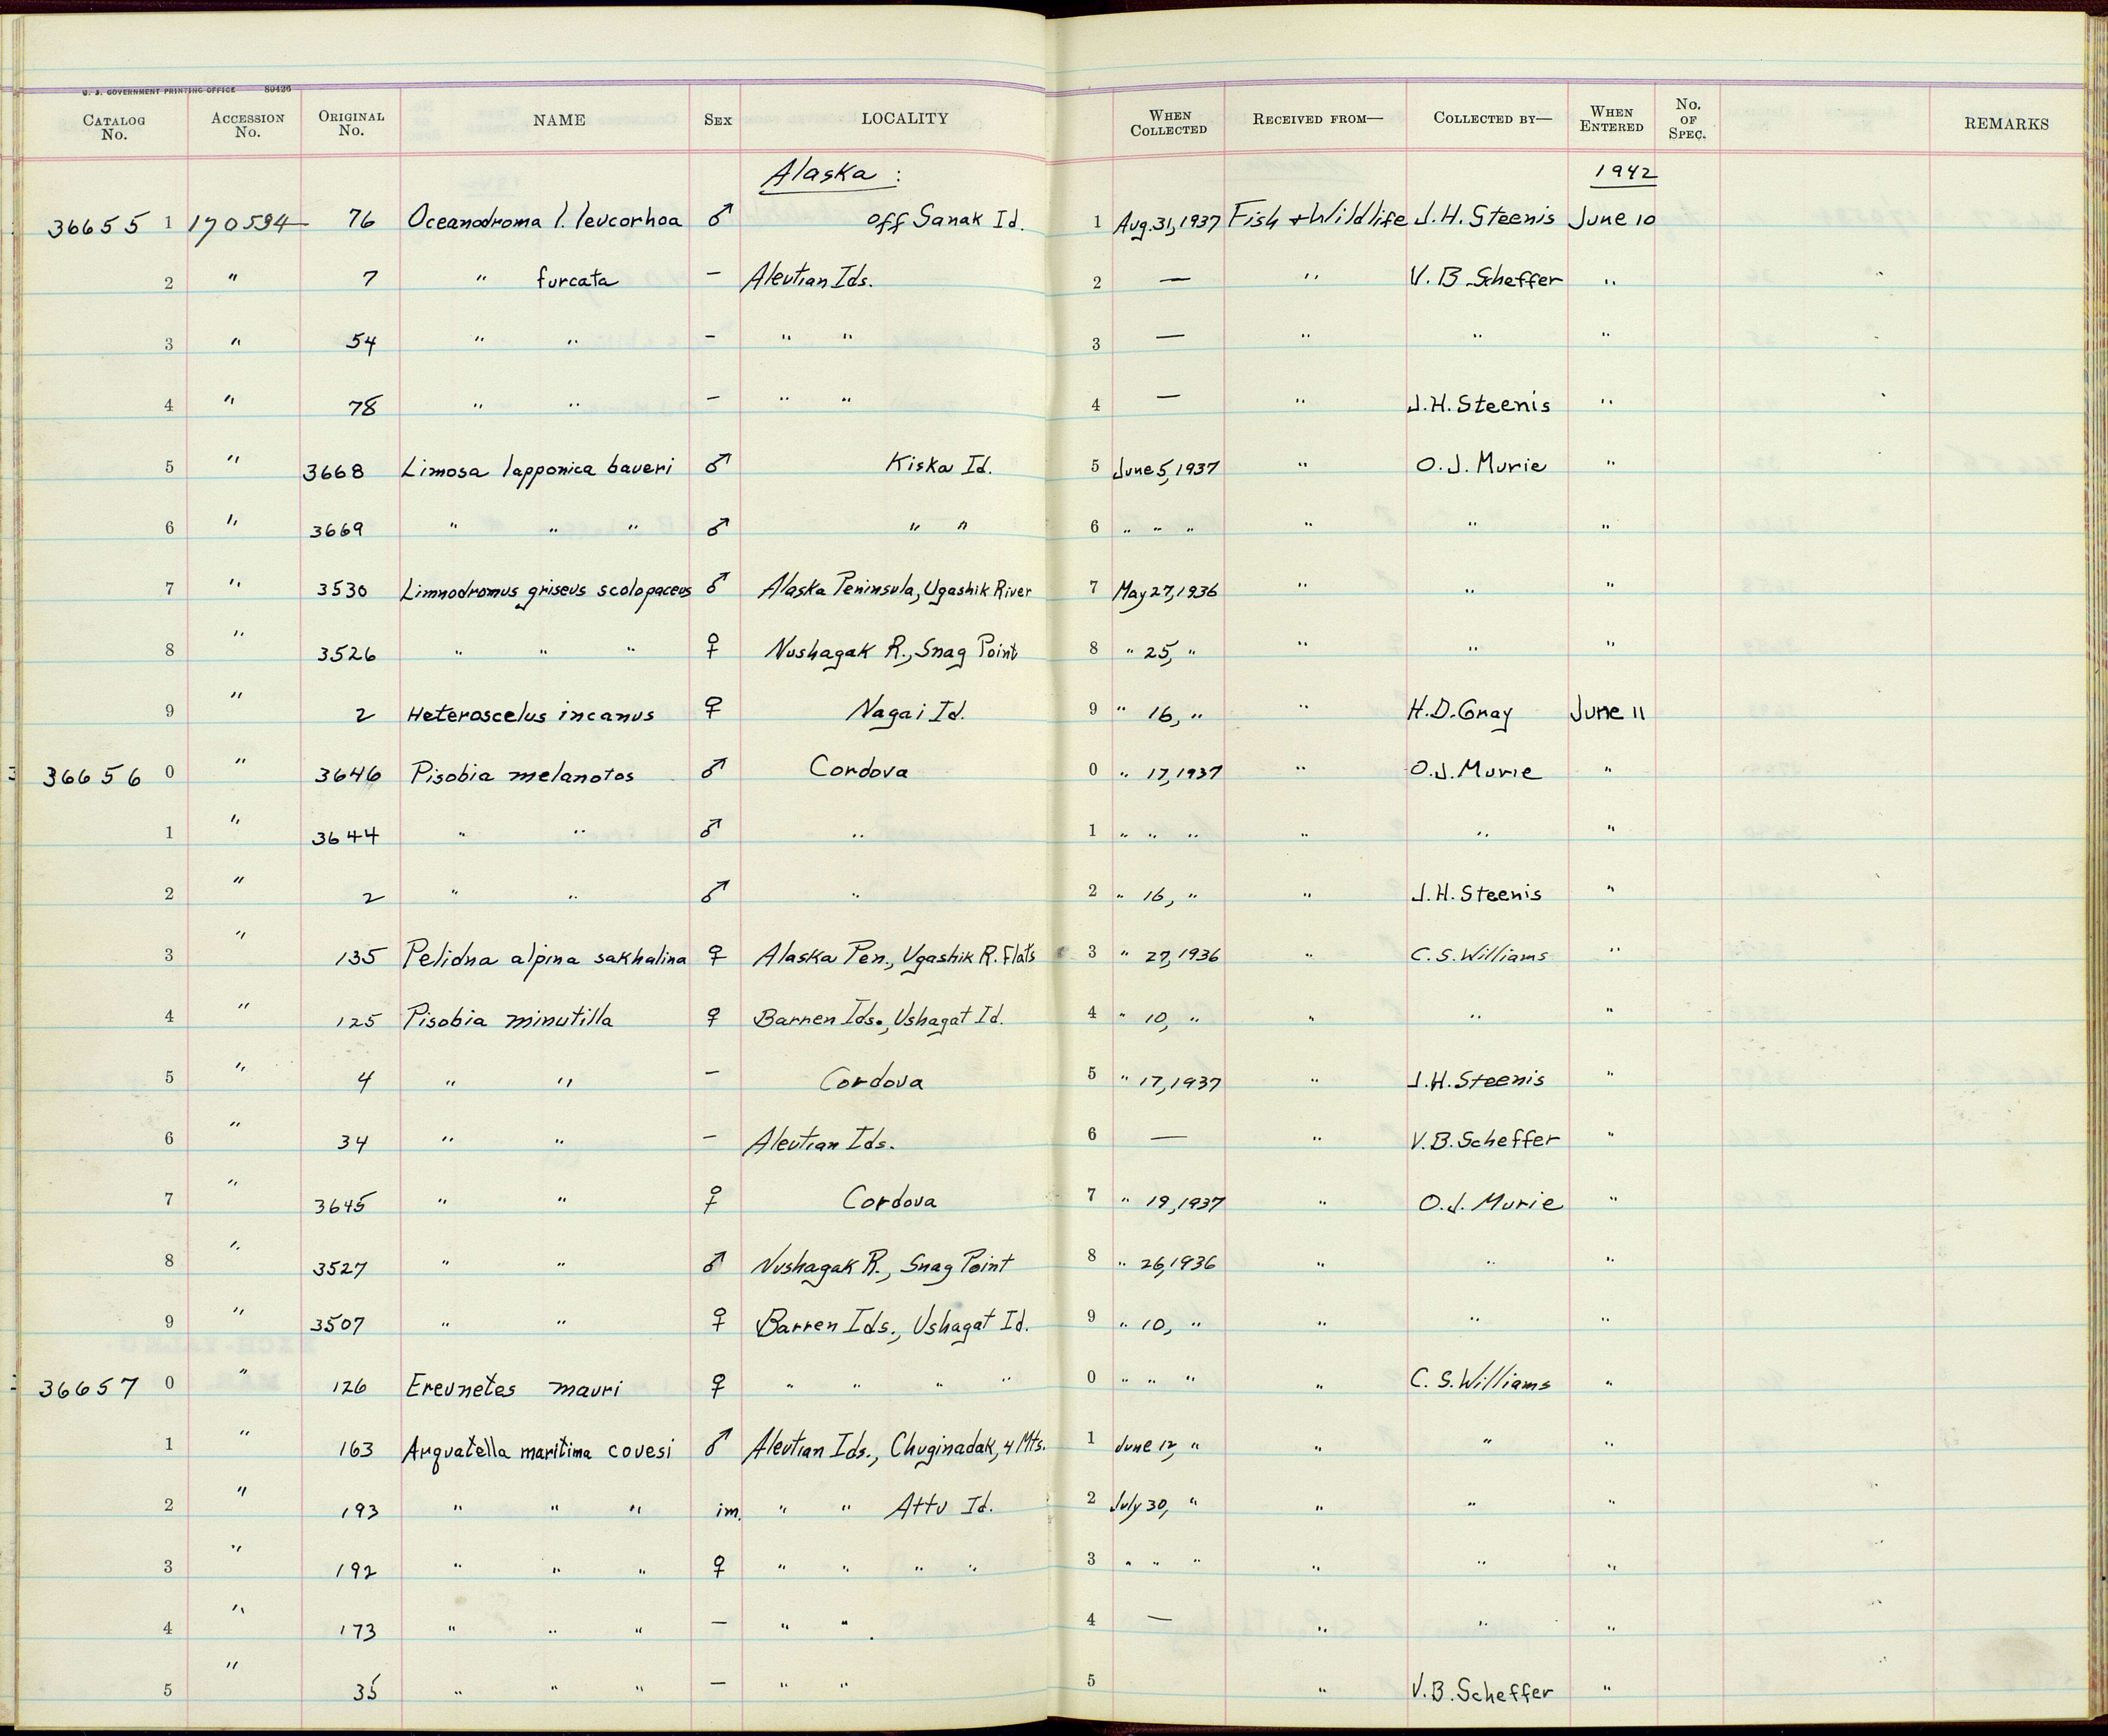 U. S. GOVERNMENT PRINTING OFFICE 89426
CATALOG No. ACCESSION No. ORIGINAL No. NAME SEX LOCALITY WHEN COLLECTED RECEIVED FROM— COLLECTED BY— WHEN ENTERED No. OF SPEC. REMARKS
Alaska : 1942
36655 1 170594 76 Oceanodroma l. leucorhoa ♂ off Sanak Id. 1 Aug. 31, 1937 Fish + Wildlife J. H. Steenis June 10
2 " 7 " furcata – Aleutian Ids. 2 — " V. B Scheffer "
3 " 54 " " – " " 3 — " " "
4 " 78 " " – " " 4 — " J. H. Steenis "
5 " 3668 Limosa lapponica baueri ♂ Kiska Id. 5 June 5, 1937 " O. J. Murie "
6 " 3669 " " " ♂ " " 6 " " " " " "
7 " 3530 Limnodromus griseus scolopaceus ♂ Alaska Peninsula, Ugashik River 7 May 27, 1936 " " "
8 " 3526 " " " ♀ Nushagak R., Snag Point 8 " 25, " " " "
9 " 2 Heteroscelus incanus ♀ Nagai Id. 9 " 16, " " H. D. Gray June 11
36656 0 " 3646 Pisobia melanotos ♂ Cordova 0 " 17, 1937 " O. J. Murie "
1 " 3644 " " ♂ " 1 " " " " " "
2 " 2 " " ♂ " 2 " 16, " " J. H. Steenis "
3 " 135 Pelidna alpina sakhalina ♀ Alaska Pen., Ugashik R. Flats 3 " 27, 1936 " C. S. Williams "
4 " 125 Pisobia minutilla ♀ Barren Ids., Ushagat Id. 4 " 10, " " " "
5 " 4 " " – Cordova 5 " 17, 1937 " J. H. Steenis "
6 " 34 " " – Aleutian Ids. 6 — " V. B. Scheffer "
7 " 3645 " " ♀ Cordova 7 " 19, 1937 " O. J. Murie "
8 " 3527 " " ♂ Nushagak R., Snag Point 8 " 26, 1936 " " "
9 " 3507 " " ♀ Barren Ids., Ushagat Id. 9 " 10, " " " "
36657 0 " 126 Ereunetes mauri ♀ " " " " 0 " " " " C. S. Williams "
1 " 163 Arquatella maritima couesi ♂ Aleutian Ids., Chuginadak, 4 Mts. 1 June 12, " " " "
2 " 193 " " " im. " " Attu Id. 2 July 30, " " " "
3 " 192 " " " ♀ " " " " 3 " " " " " "
4 " 173 " " " – " " 4 — " " "
5 " 35 " " " – " " 5 " V. B. Scheffer "